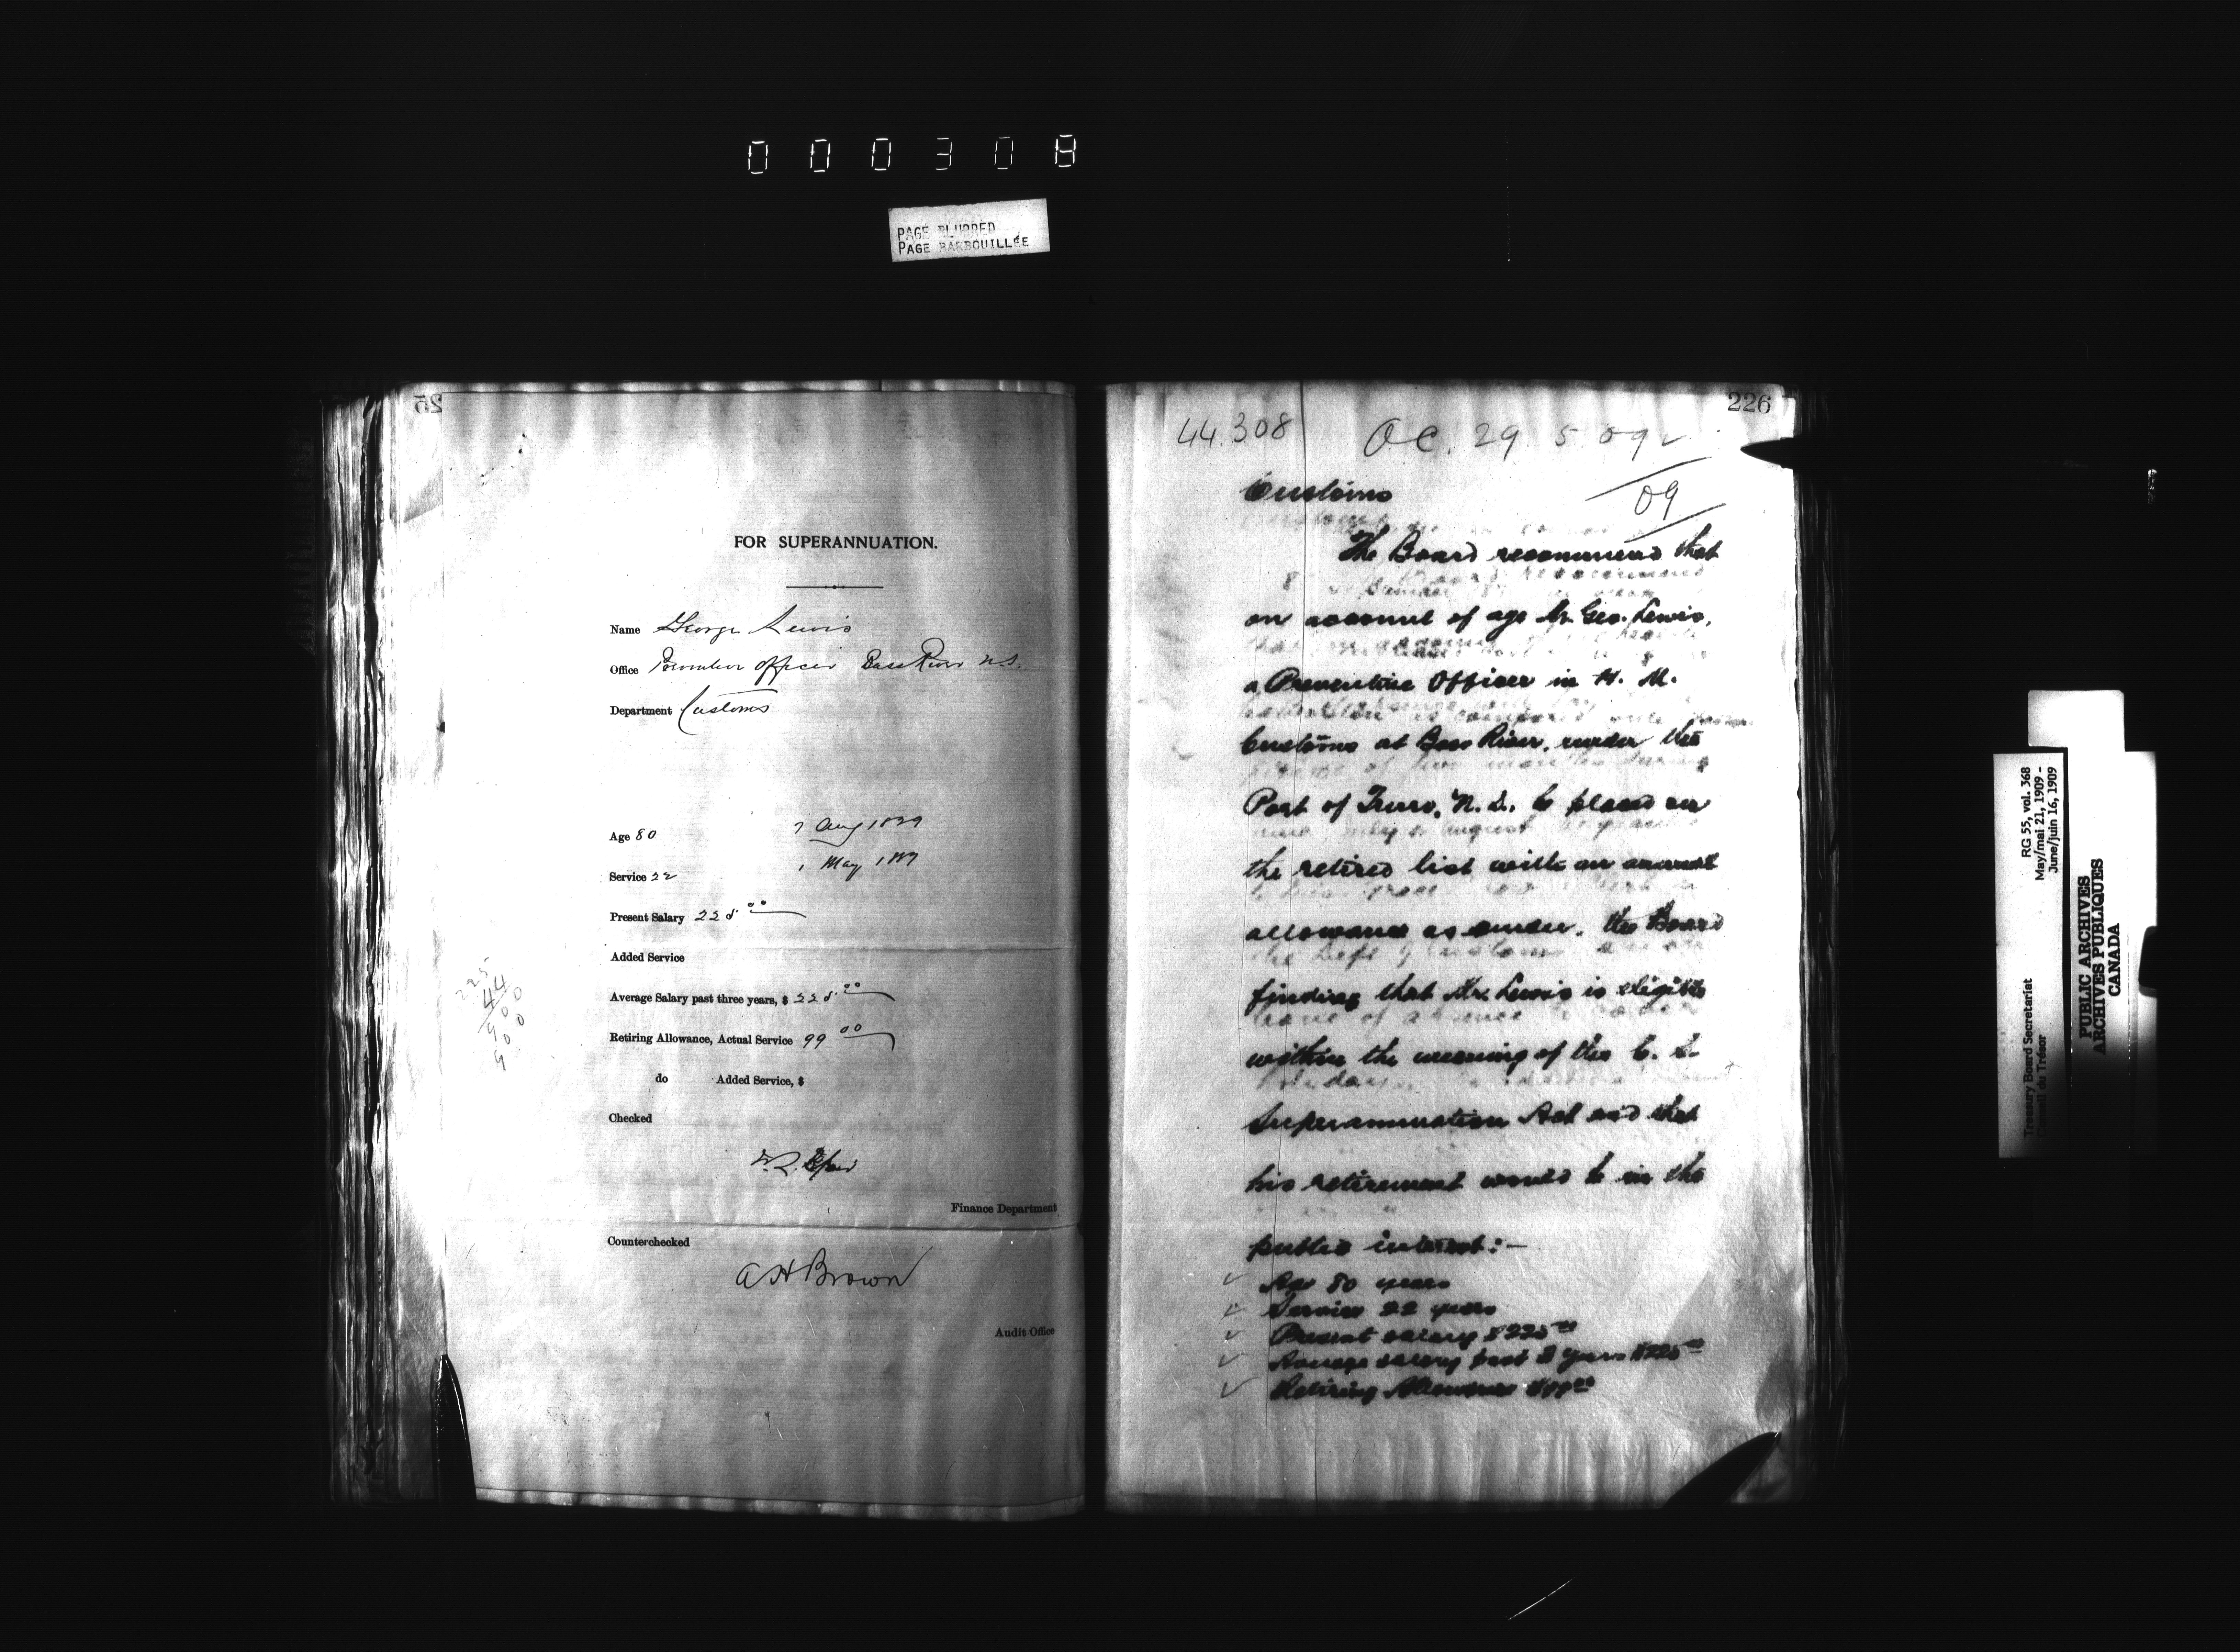 000308
PAGE BLURRED
PAGE BARBOUILLÉE
25
FOR SUPERANNUATION.
Name George Lewis
Office Preventive Officer Bass River N.S.
Department Customs
Age 80 7 Aug 1829
Service 22 1 May 1887
Present Salary 225.00
Added Service
Average Salary past three years, $ 225.00
Retiring Allowance, Actual Service 99 00
do Added Service, $
Checked
Finance Department
Counterchecked
A H Brown
Audit Office
225
44
900
900
9
226
44.308 O C. 29 5 09
09
Customs
The Board recommend that
on account of age Mr. Geo. Lewis,
a Preventive Officer in H. M.
Customs at Bass River, under the
Port of Truro, N. S. be placed on
the retired list with an annual
allowance as under, the Board
finding that Mr. Lewis is eligible
within the meaning of the C. S.
Superannuation Act and that
his retirement would be in the
public interest:-
Age 80 years
Service 22 years
Present salary $225.00
Average salary past 3 years $225.00
Retiring Allowance $99.00
Treasury Board Secretariat RG 55, vol. 368
Conseil du Trésor May/mai 21, 1909 -
June/juin 16, 1909
PUBLIC ARCHIVES
ARCHIVES PUBLIQUES
CANADA